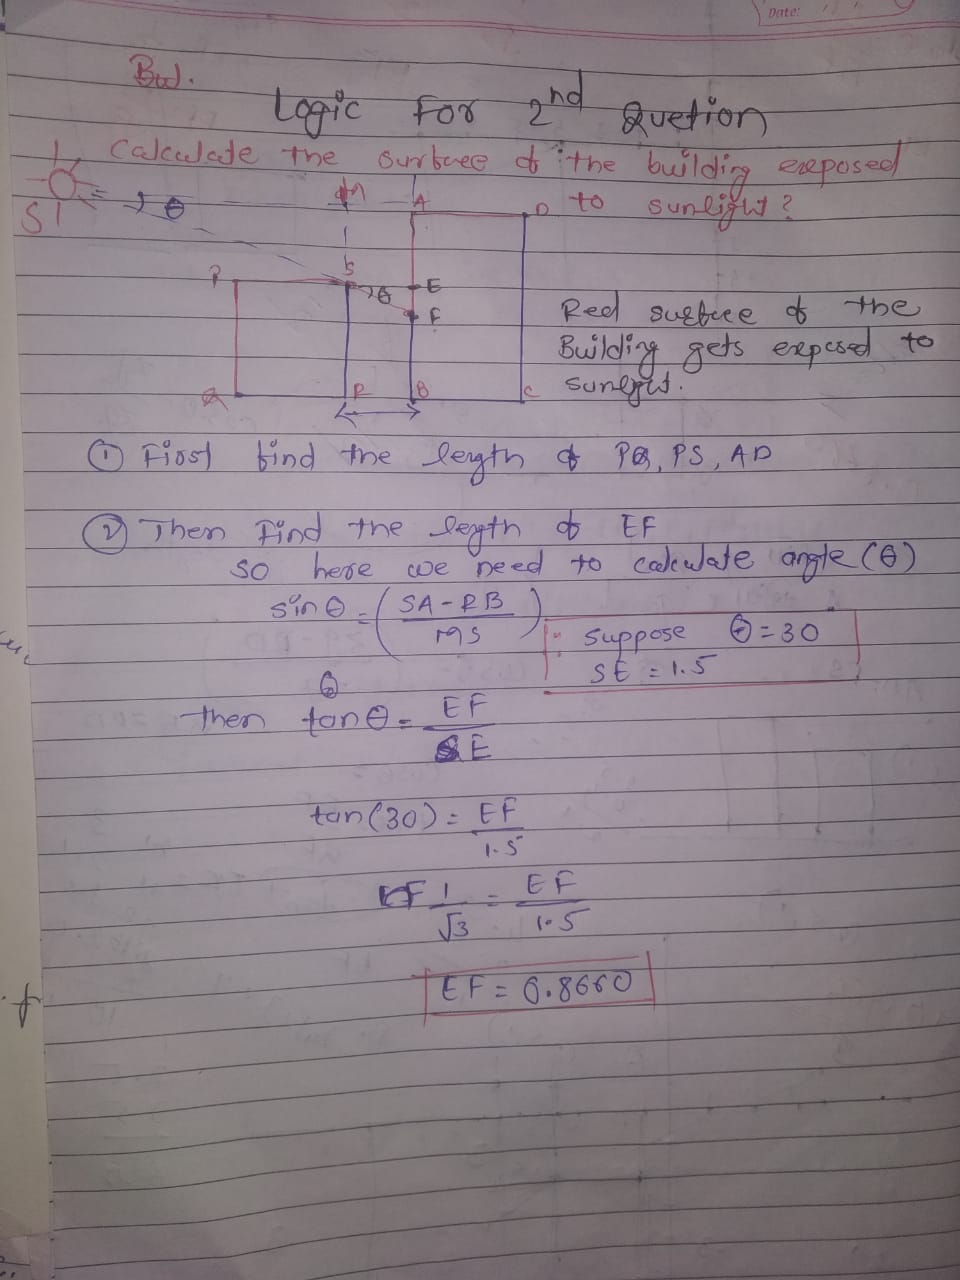 Date:
Logic For 2nd Quetion
Calculate the surface of the building exposed
to sunlight?
S
θ
M
A
D
P
S
E
θ
F
Q
R
B
C
Red surface of the
Building gets exposed to
sunlight.
① First find the length of PQ, PS, AD
② Then Find the length of EF
so here we need to calculate angle (θ)
sinθ = (SA-RB / MS)
∴ suppose θ = 30
SE = 1.5
Then tanθ = EF / SE
tan(30) = EF / 1.5
1 / √3 = EF / 1.5
EF = 0.8660